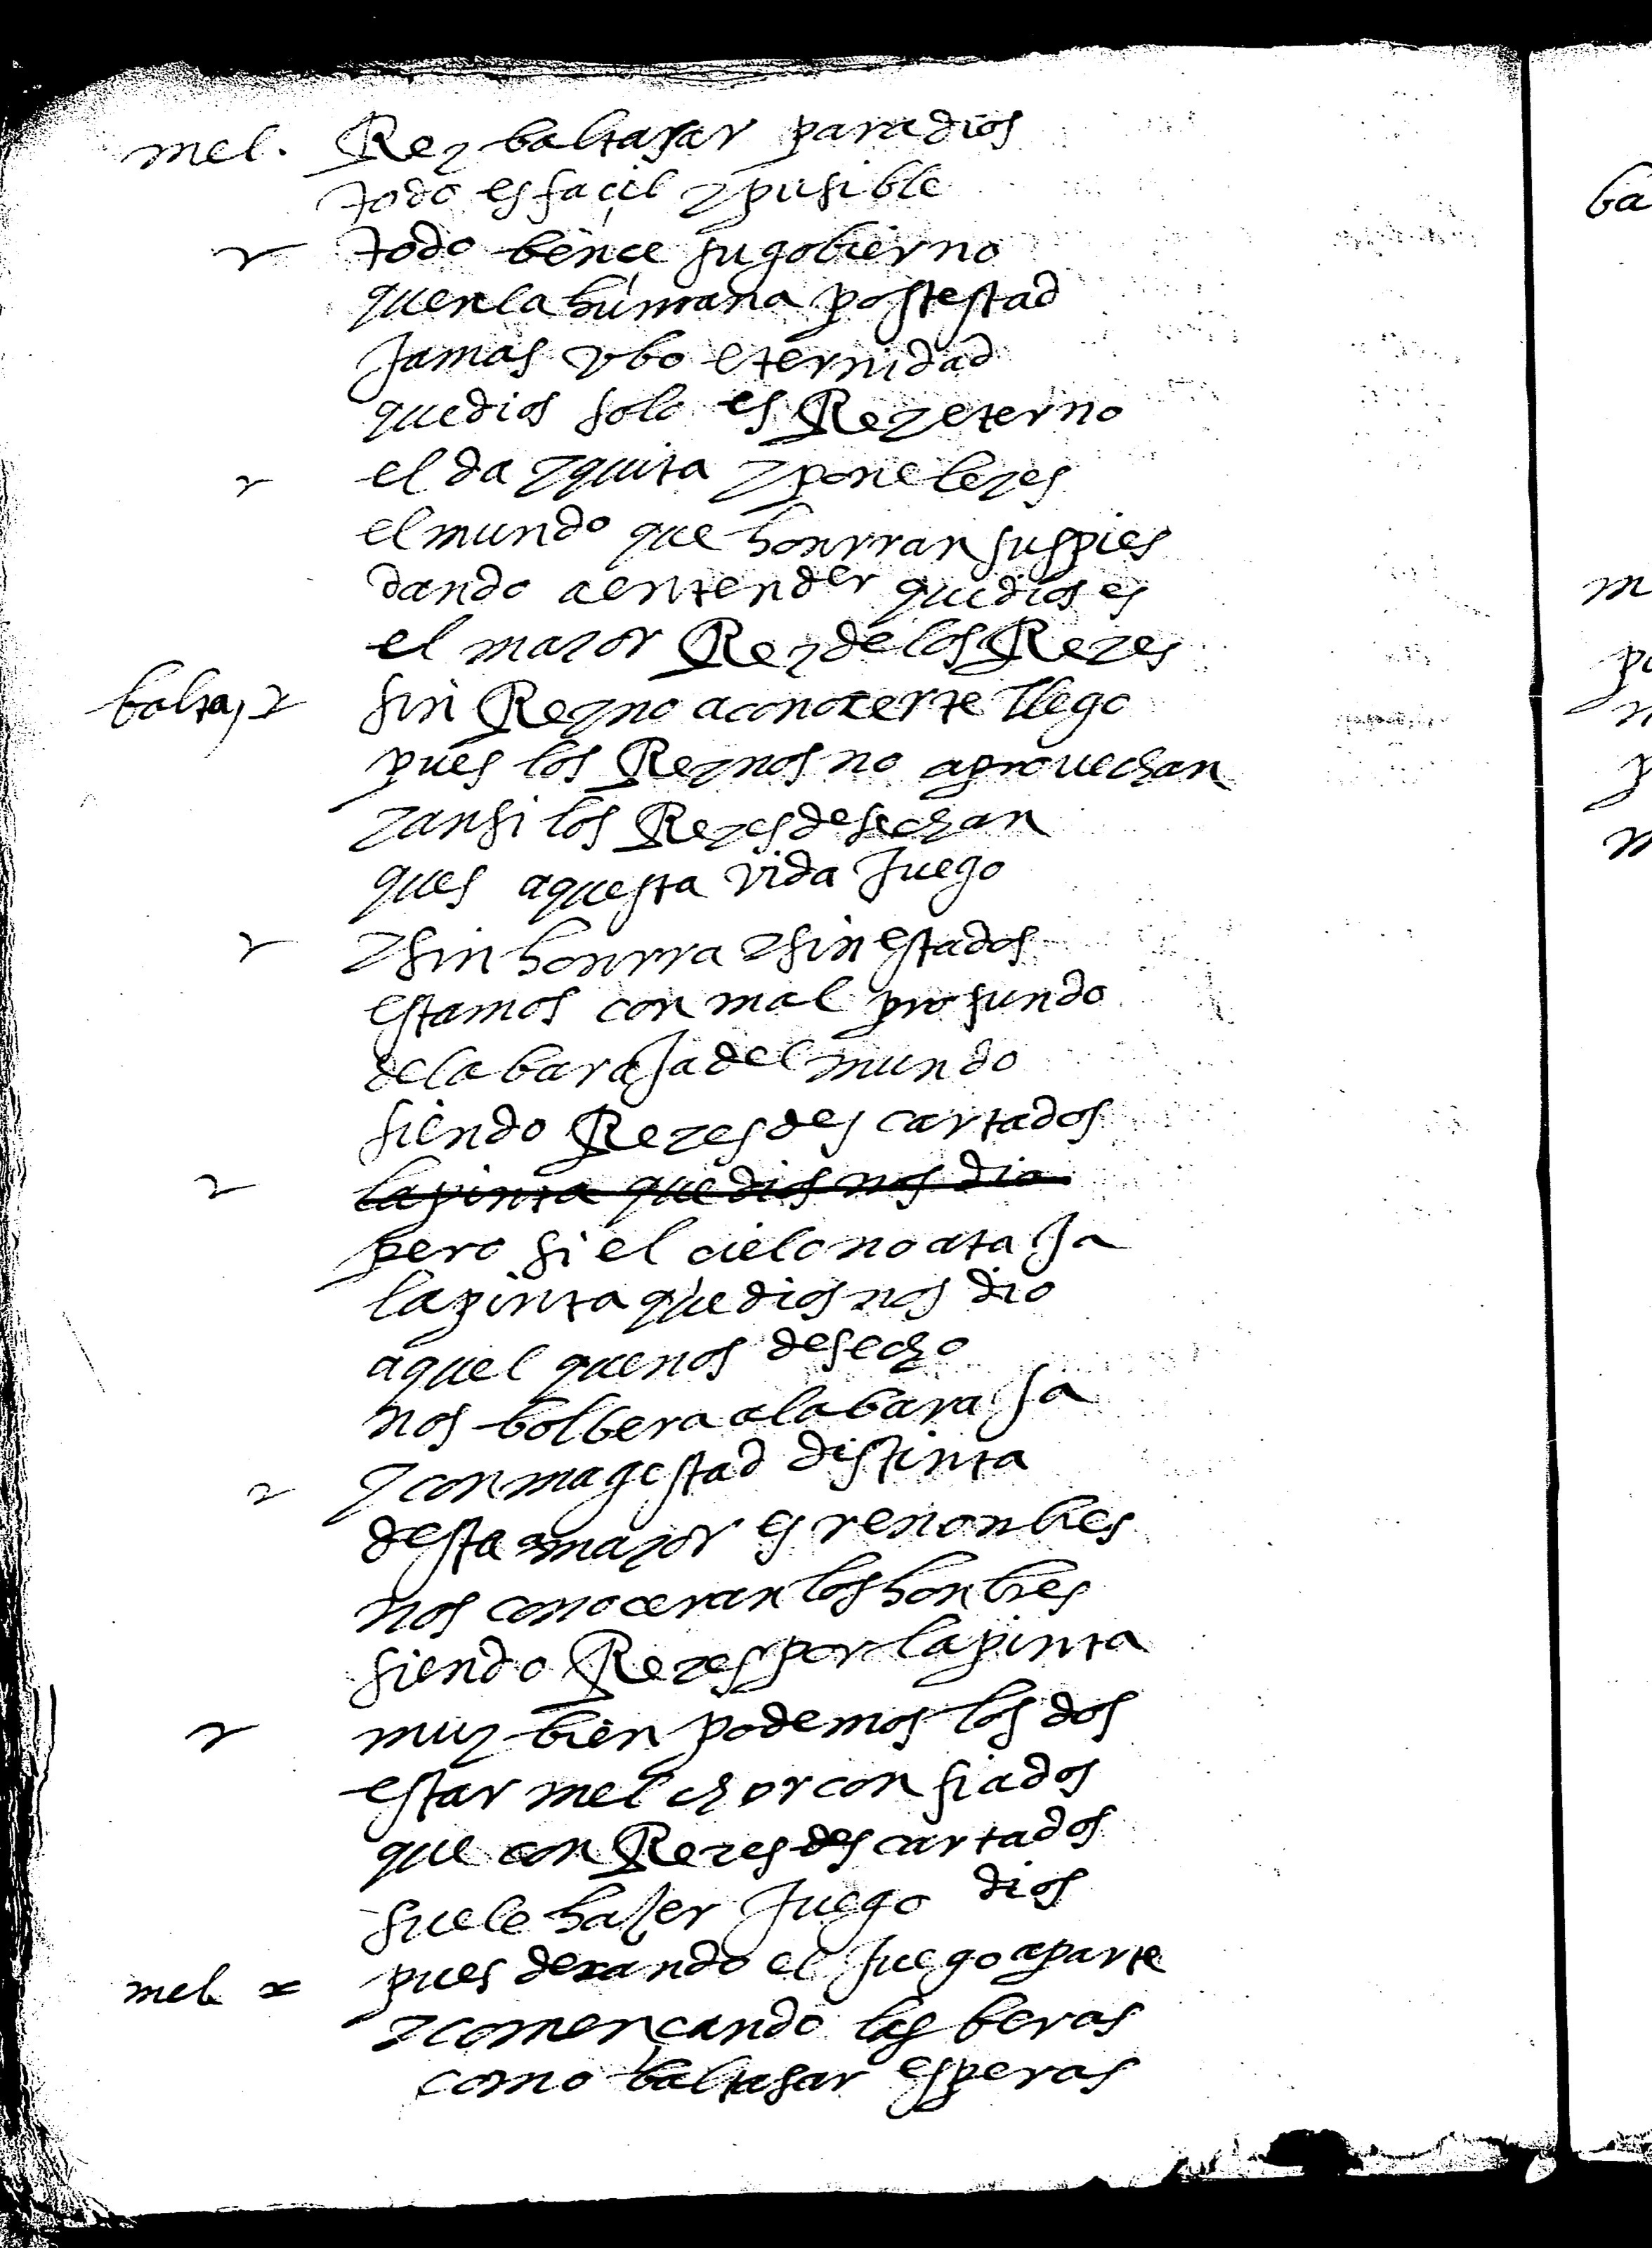 mel. Rey baltasar para dios
todo es facil y pusible
todo bençe su gobierno
quen la humana postestad
Jamas vbo eternidad
que dios solo es Rey eterno
el da y quita y pone leyes
el mundo que honrran sus pies
dando a entender que dios es
el mayor Rey de los Reyes
balta, sin Reyno a conocerte llego
pues los Reynos no aprouechan
y ansi los Reyes desechan
ques aquesta vida Juego
y sin honrra y sin estados
estamos con mal profundo
de la baraJa del mundo
siendo Reyes descartados
la pinta que dios nos dio
pero si el cielo no ataJa
la pinta que dios nos dio
aquel que nos desecho
nos bolbera a la baraJa
y con magestad distinta
desta mayores renonbres
nos conoceran los honbres
siendo Reyes por la pinta
muy bien podemos los dos
estar melchor confiados
que con Reyes descartados
suele haser Juego dios
mel. pues dexando el Juego aparte
y començando las beras
como baltasar esperas
ba
m